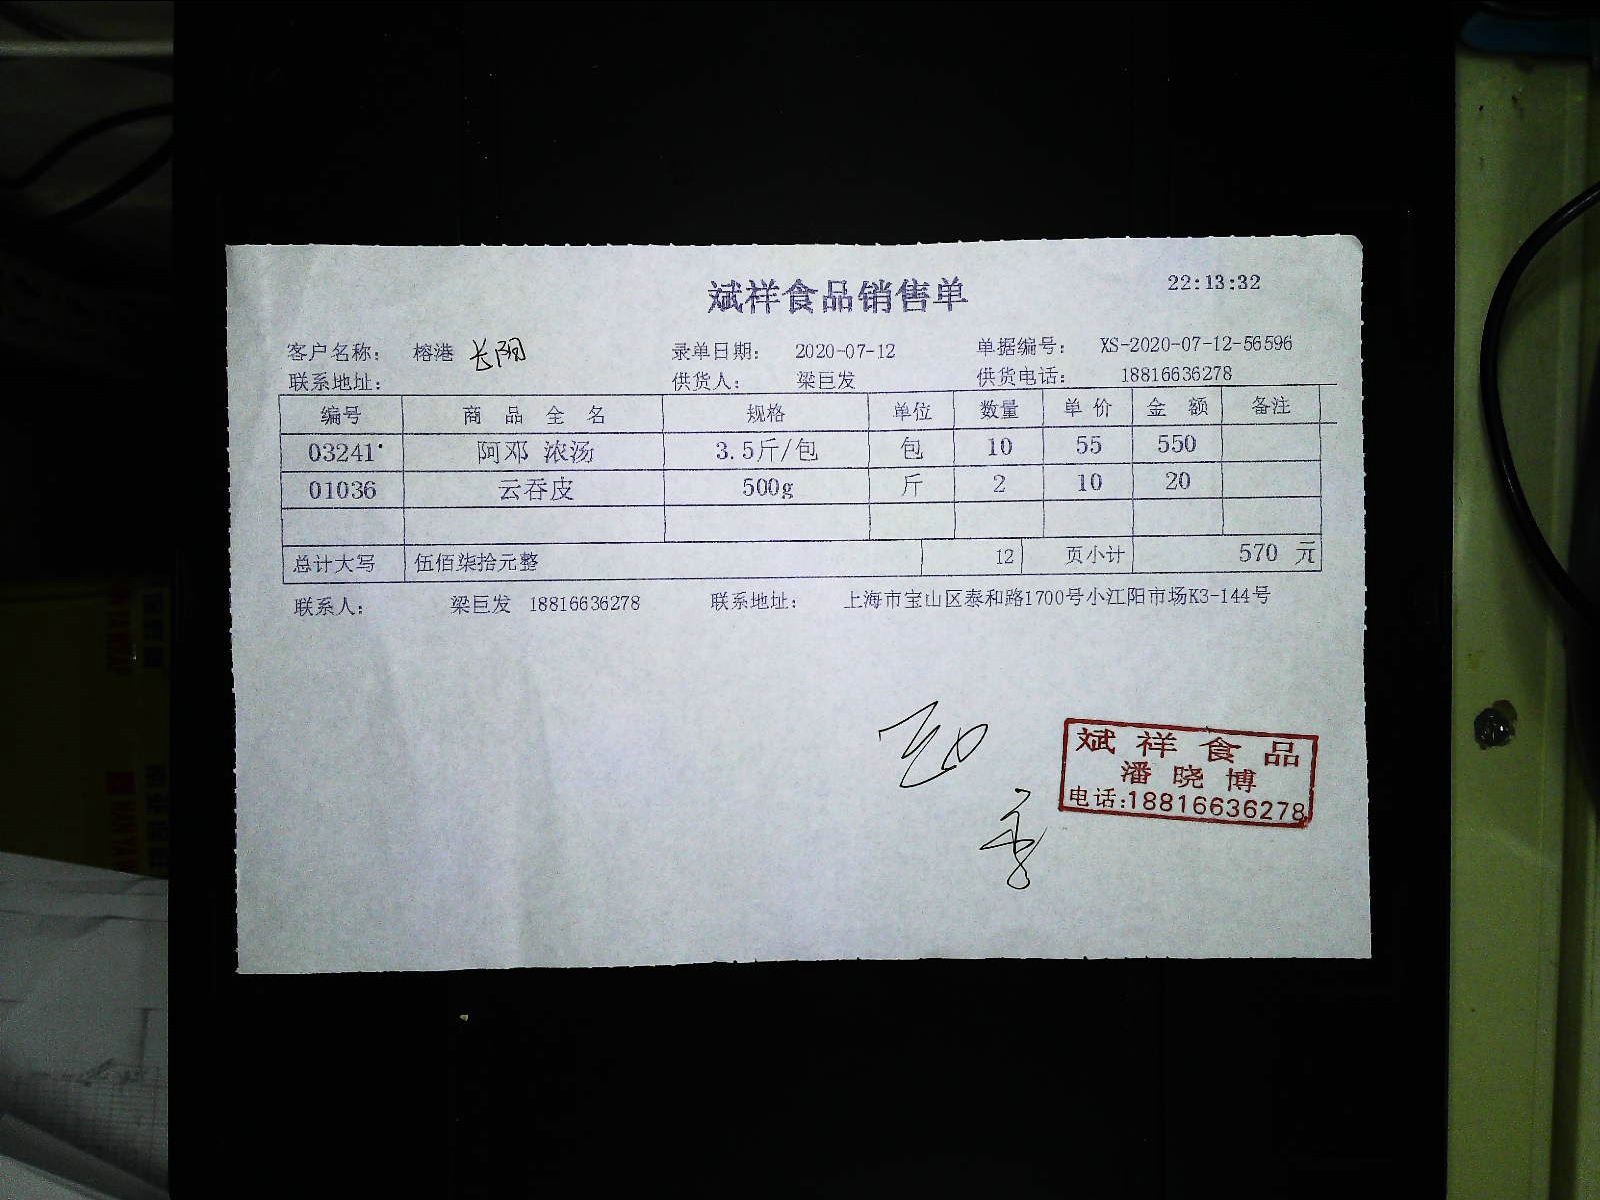 斌祥食品销售单 22:13:32
客户名称： 榕港 长阳 录单日期： 2020-07-12 单据编号： XS-2020-07-12-56596
联系地址： 供货人： 梁巨发 供货电话： 18816636278
编号 商品全名 规格 单位 数量 单价 金额 备注
03241 阿邓 浓汤 3.5斤/包 包 10 55 550
01036 云吞皮 500g 斤 2 10 20
总计大写 伍佰柒拾元整 12 页小计 570 元
联系人： 梁巨发 18816636278 联系地址： 上海市宝山区泰和路1700号小江阳市场K3-144号
斌祥食品
潘晓博
电话:18816636278